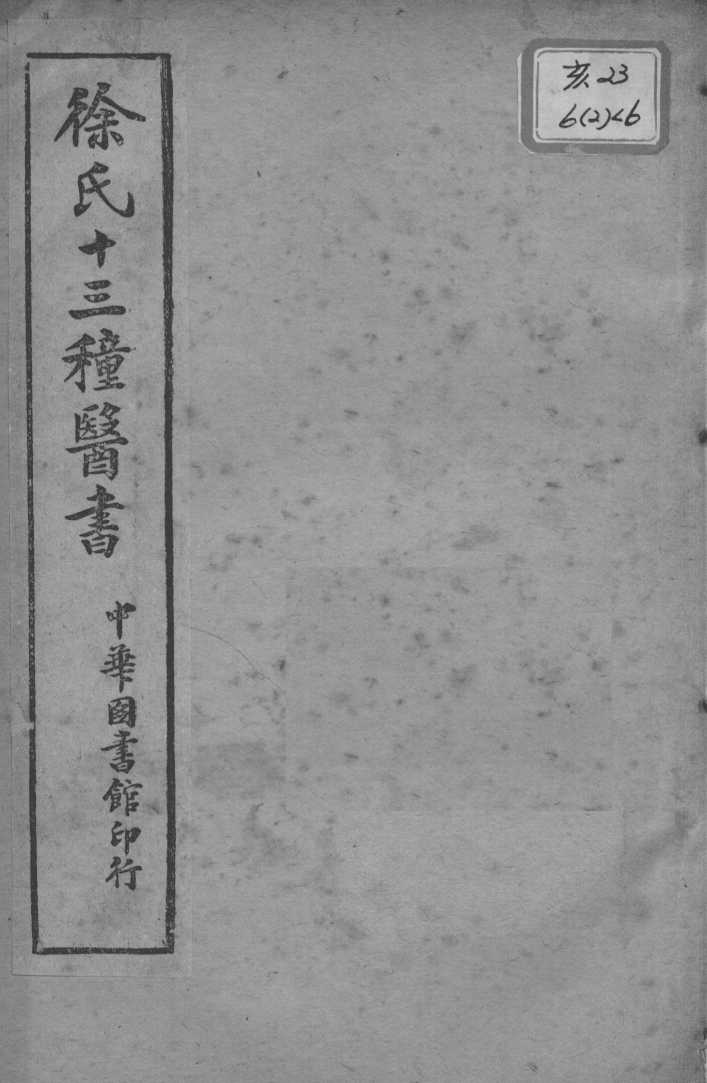 徐氏十三種醫書
中華圖書館印行
亥23
6(2)<6